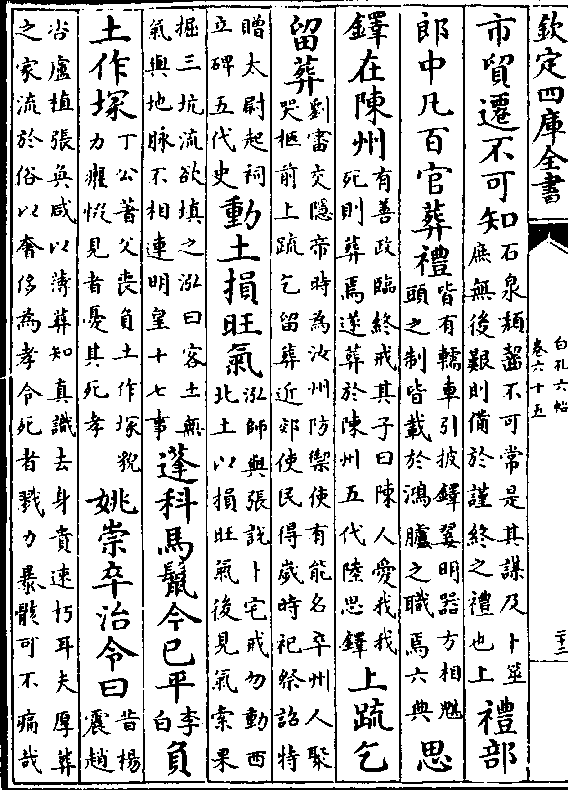 欽定四庫全書
白孔六帖
卷六十五
二十二
市貿遷不可知石泉頽齧不可常是其謀及卜筮庶無後艱則備於謹終之禮也上禮部
郎中凡百官葬禮皆有轜車引披鐸翣明器方相魌頭之制皆載於鴻臚之職焉六典思
鐸在陳州有善政臨終戒其子曰陳人愛我我死則葬焉遂葬於陳州五代陸思鐸上疏乞
留葬劉審交隱帝時為汝州防禦使有能名卒州人聚哭柩前上疏乞留葬近郊使民得歲時祀祭詔特
贈太尉起祠立碑五代史動土損旺氣泓師與張說卜宅戒勿動西北土以損旺氣後見氣索果
掘三坑流欲填之泓曰客土無氣與地脉不相連明皇十七事蓬科馬鬛今已平李白負
土作塚丁公著父喪負土作塚貌力癯惙見者憂其死孝姚崇卒治令曰昔楊震趙
咨盧植張奐咸以薄葬知真識去身貴速朽耳夫厚葬之家流於俗以奢侈為孝令死者戮力暴骸可不痛哉